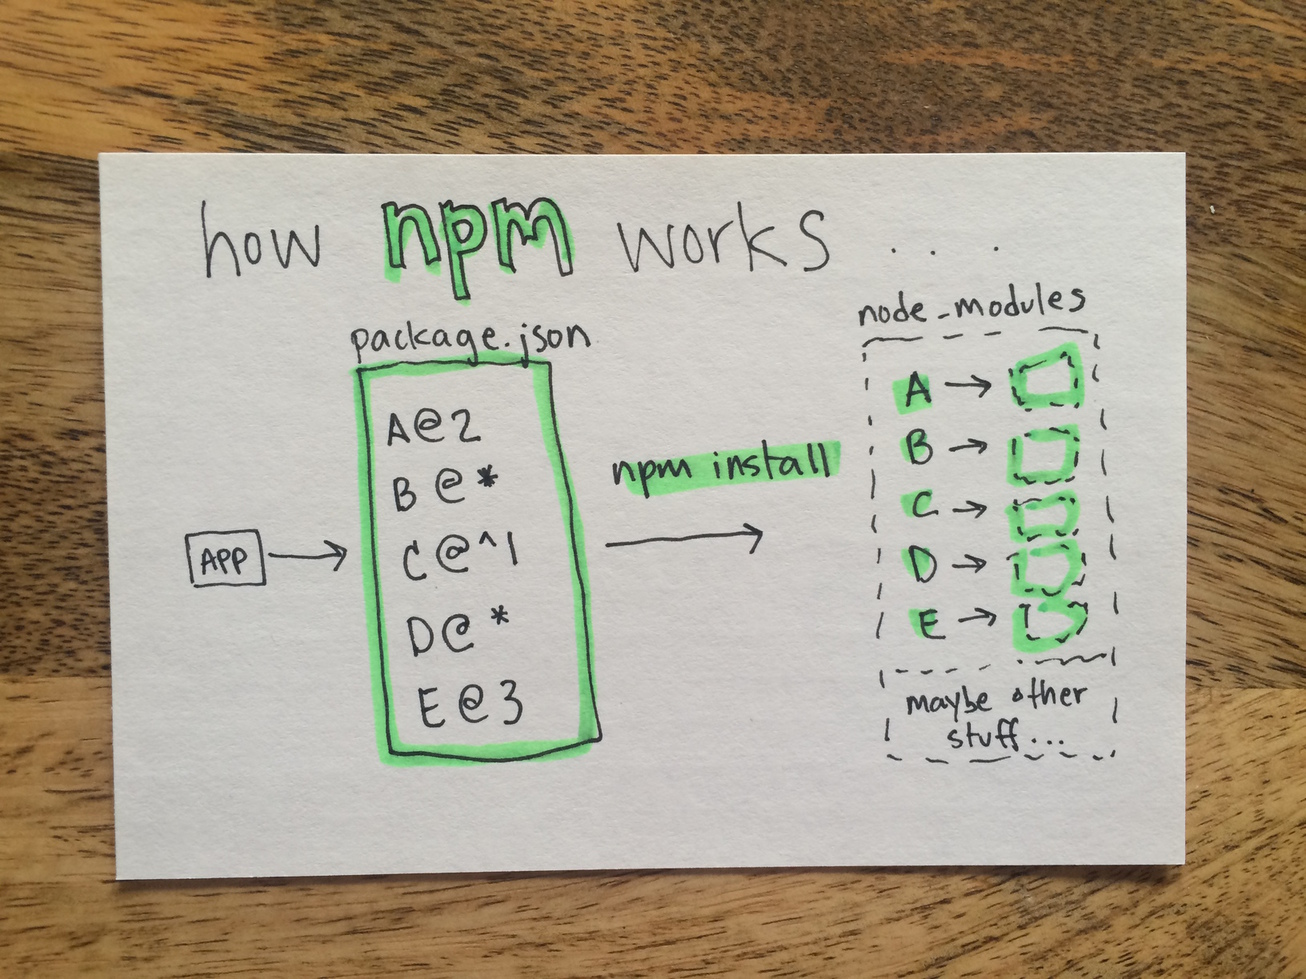 how npm works ...
package.json
A@2
B@*
C@^1
D@*
E@3
APP
npm install
node_modules
A
B
C
D
E
maybe other
stuff...